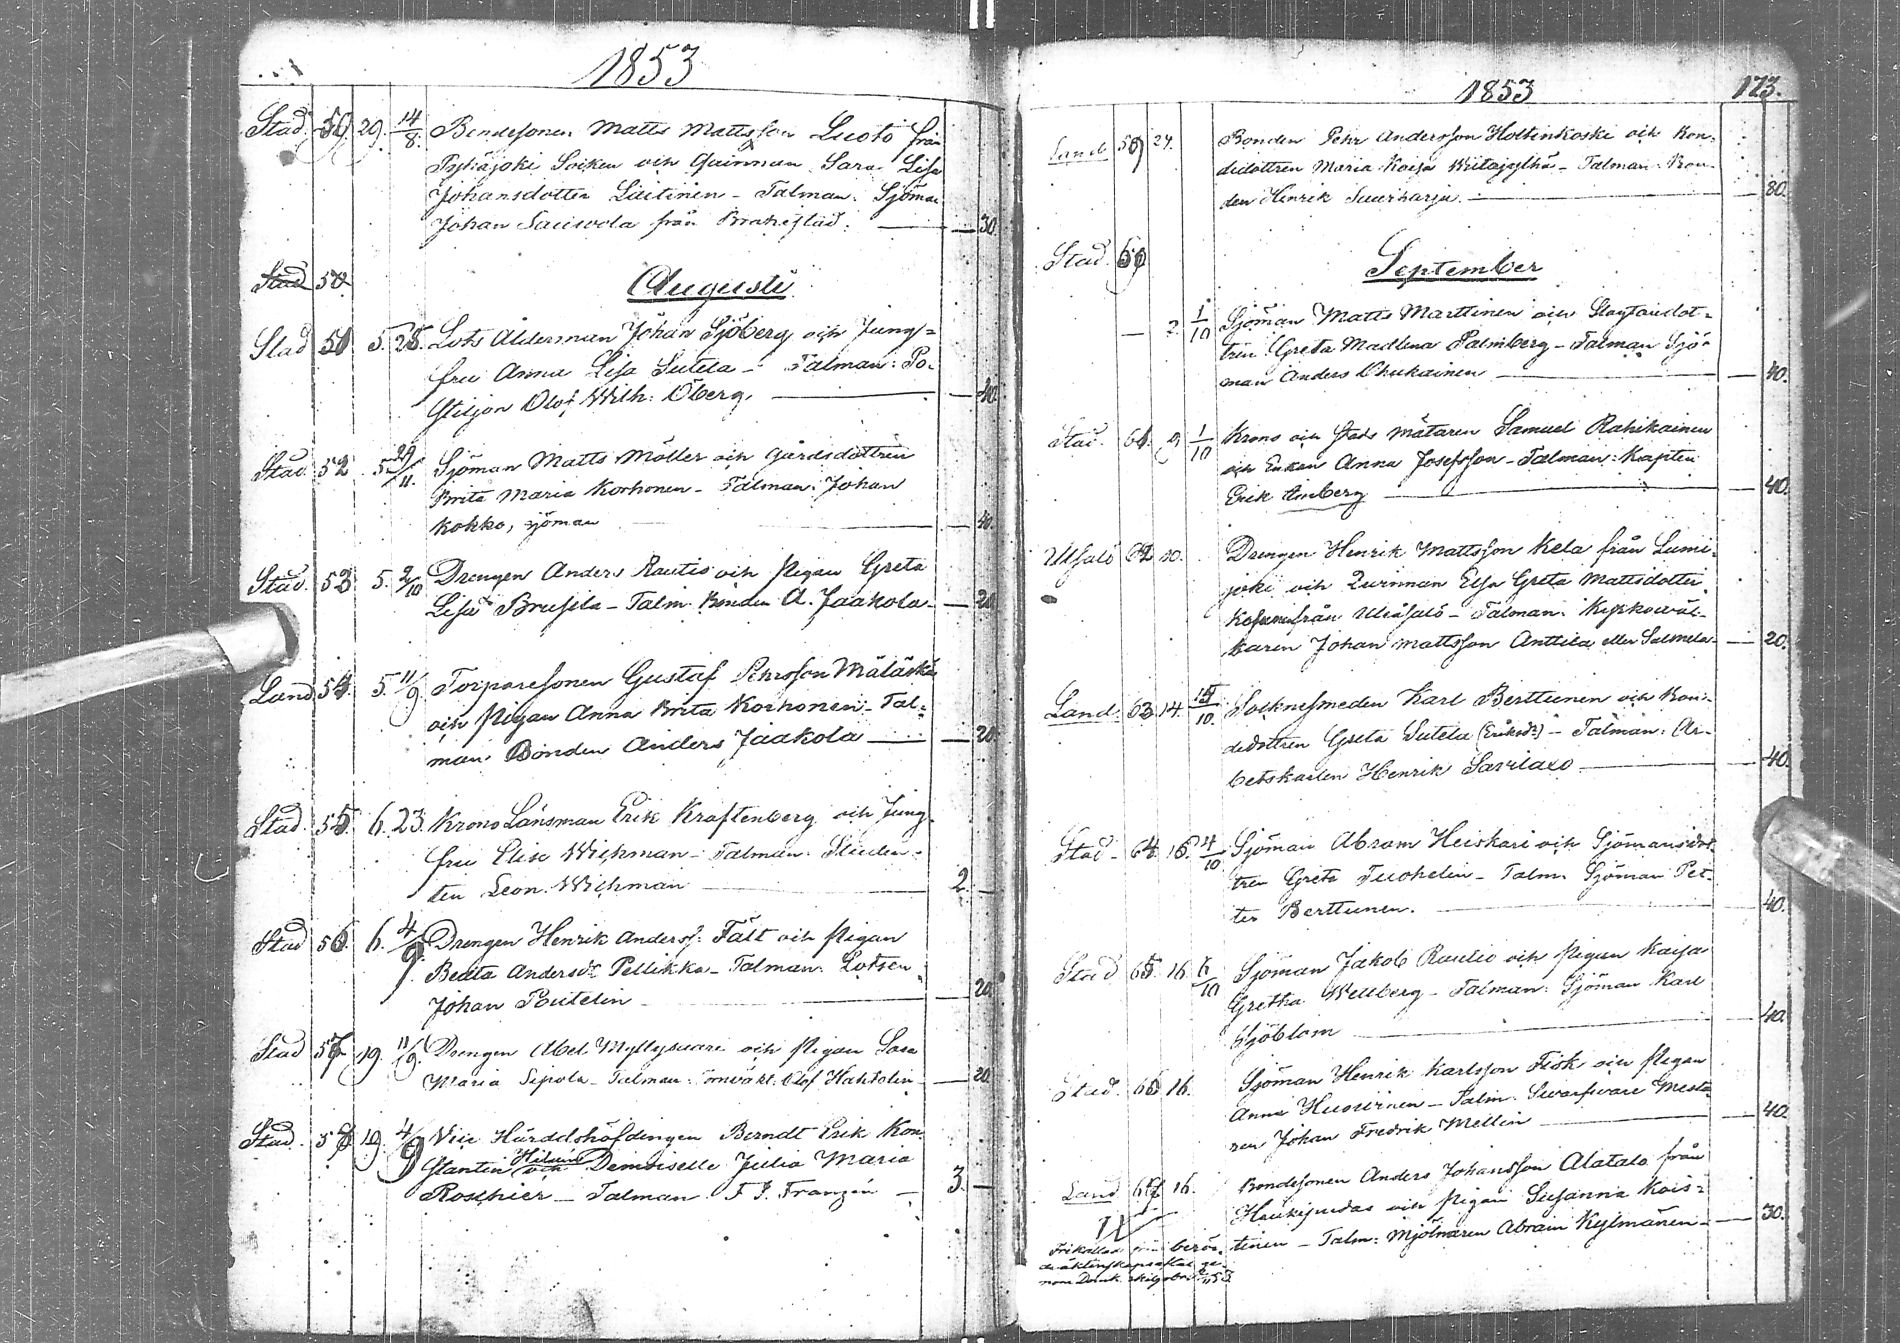 1853
Stad 50 29. 14/8. Bondesonen Matts Mattsson Luoto från
Pyhäjoki Socken och Quinnan Sara Lisa
Johansdotter Laitinen - Talman: Sjöman
Johan Sauvola från Brahestad. 30.
Stad 50 Augusti
Stad 50 5. 28. Lots Ålderman Johan Sjöberg och Jung-
fru Anna Lisa Sutela - Talman: Po-
stiljon Olof Wilh: Öberg. 40.
Stad 52 5. 29/11. Sjöman Matts Möller och gårdsdottren
Brita Maria Korhonen - Talman: Johan
Kokko, sjöman 40.
Stad. 53 5. 2/10 Drengen Anders Rautio och Pigan Greta
Lisa - Talm. Bonden A. Jaakola 20.
Land. 54. 5. 11/9 Torparesonen Gustaf Pehrsson Määläskä
och Pigan Anna Brita Korhonen - Tal-
man. Bonden Anders Jaakola 20.
Stad. 55. 6. 23. Krono Länsman Erik Kraftenberg och Jung-
fru Elise Wichman - Talman. Studen-
ten Leon. Wichman 2.
Stad 56. 6. 4/9. Drengen Henrik Anderss: Fält och Pigan
Beata Andersdr Pellikka - Talman: Lotsen
Johan Rutelin 20.
Stad 57 19. 11/9. Drengen Abel Myllysuari och Pigan Sara
Maria Sipola - Talman: Tornväkt. Olof Hahtolin 20.
Stad. 58 19. 4/9 Vice Häradshöfdingen Berndt Erik Kon-
stantin och Demoiselle Julia Maria
Roschier - Talman F. J. Franzén 3.
1853 173.
Land 59 27. Bonden Pehr Andersson Holtinkoski och Bon-
dedottren Maria Kaisa Kiitajylhä - Talman: Bon-
den Henrik Suurharju. 80.
Stad. 59 September
2. 1/10 Sjöman Matts Marttinen och
Greta Madlena Palmberg - Talman Sjö-
man Anders 40.
Stad. 61. 9 1/10 Krono och Stads mätaren Samuel Rahikainen
och Enkan Anna Josefsson - Talman: Kapten
Erik Limberg 40.
Ulsalö 62 10. Drengen Henrik Mattsson Kela från Lumi-
joki och Qvinnan Elsa Greta Mattsdotter
från Uleåsalo - Talman. Kyrkowäk-
taren Johan Mattsson Anttila eller Salmela 20.
Land. 63 14. 10. Socknesmeden Karl Berttunen och Bon-
dedottren Greta Sutela (Eriksdr) - Talman: Ar-
betskarlen Henrik Savilaxo 40.
Stad. 64. 15. 4/10 Sjöman Abram Heiskari och Sjömansdot-
tren Greta Tuohelin - Talm. Sjöman Pet-
ter Berttunen. 40.
Stad 65. 16. 6/10 Sjöman Jakob Rautio och Pigan Kaisa
Gretha Wellberg - Talman: Sjöman Karl
Sjöblom 40.
Stad. 66 16. Sjöman Henrik Karlsson Fisk och Pigan
Anna Huovinen - Talm. Swarfware Mesta-
ren Johan Fredrik Mellin 40.
Land 67 16. Bondesonen Anders Johansson Alatalo från
Haukipudas och Pigan Susanna Kois-
tinen - Talm: Mjölnaren Abram Kylmänen 30.